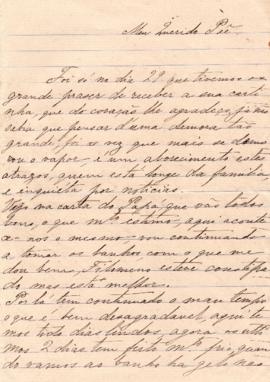 Meu Querido Pie
Foi só no dia 29 que tivemos o
grande praser de receber a sua carti
nha, que de coração lhe agradeço, já não
sabia que pensar d'uma demora tão
grande, foi a vez que mais se demo
rou o vapor, é um aborrecimento estes
atrazos, quem está longe da familia
e inquieta por noticias.
Vejo na carta do Papá que vão todos
bons, o que m.to estimo, aqui aconte
ce-nos o mesmo; vou continuando
a tomar os banhos com o que me
dou bem, Filomeno esteve constipa
do mas está melhor.
Por lá tem continuado o mau tempo
o que é bem desagradavel, aqui te
mos tido dias lindos, agora os ulti
mos 2 dias tem feito m.to frio, quan
do vamos ao banho ha gelo nas